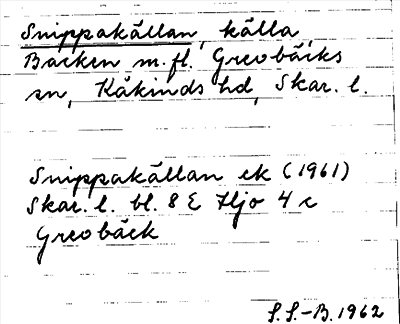 Snippakällan, källa,
Backen m.fl. Grevbäcks
sn, Kåkinds hd, Skar. l.
Snippakällan ek (1961)
Skar. l. bl. 8 E Hjo 4 c
Grevbäck
S.S.-B. 1962